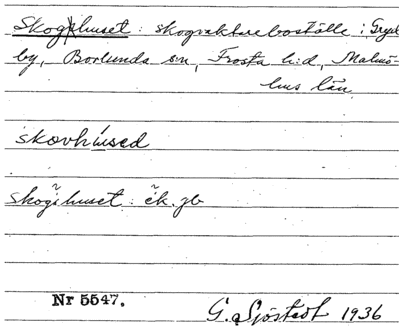 Skogshuset: skogvaktareboställe i Gryd
by, Borlunda sn, Frosta h:d, Malmö-
hus län
skovhused
skogshuset: ek. jb
Nr 5547.
G. Sjöstedt 1936